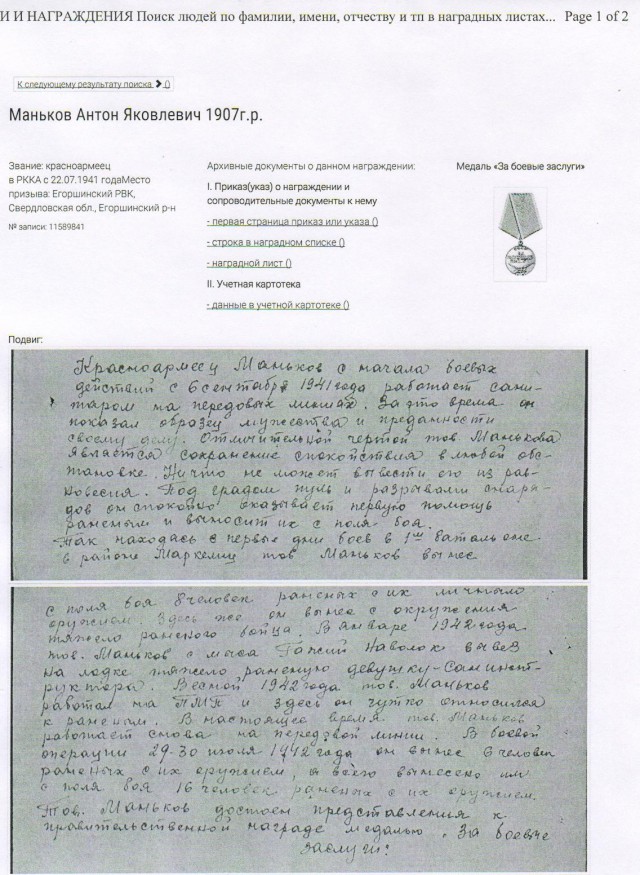 И И НАГРАЖДЕНИЯ Поиск людей по фамилии, имени, отчеству и тп в наградных листах... Page 1 of 2
К следующему результату поиска ()
Маньков Антон Яковлевич 1907г.р.
Звание: красноармеец
в РККА с 22.07.1941 годаМесто
призыва: Егоршинский РВК,
Свердловская обл., Егоршинский р-н
№ записи: 11589841
Архивные документы о данном награждении:
I. Приказ(указ) о награждении и
сопроводительные документы к нему
- первая страница приказ или указа ()
- строка в наградном списке ()
- наградной лист ()
II. Учетная картотека
- данные в учетной картотеке ()
Медаль «За боевые заслуги»
Подвиг:
Красноармеец Маньков с начала боевых
действий с 6 сентября 1941 года работает сани-
таром на передовых линиях. За это время он
показал образец мужества и преданности
своему делу. Отличительной чертой тов. Манькова
является сохранение спокойствия в любой обс-
тановке. Ничто не может вывести его из рав-
новесия. Под градом пуль и разрывами снаря-
дов он спокойно оказывает первую помощь
раненым и выносит их с поля боя.
Так находясь с первые дни боев в 1ый батальоне
в районе тов Маньков вынес
с поля боя 8 человек раненых с их личным
оружием. Здесь же он вынес с окружения
тяжело раненого бойца. В январе 1942 года
тов. Маньков с мыса Наволок вывез
на лодке тяжело раненую девушку-санинст-
руктора. Весной 1942 года тов. Маньков
работал на ПМП и здесь он чутко относился
к раненым. В настоящее время тов. Маньков
работает снова на передовой линии. В боевой
операции 29-30 июля 1942 года он вынес 6 человек
раненых с их оружием, а всего вынесено им
с поля боя 16 человек раненых с их оружием.
Тов. Маньков достоен представления к
правительственной награде медалью "За боевые
заслуги"